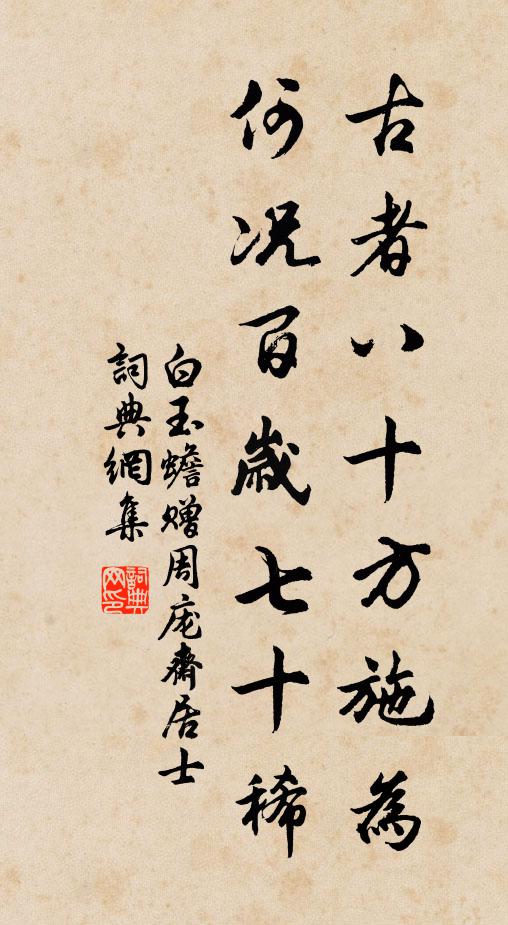 古者八十方施為
何況百歲七十稀
白玉蟾贈周庬齋居士
詞典網集
詞典網印